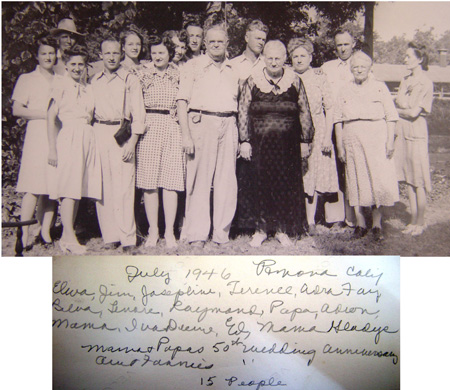 July 1946 Pomona Caly
Elwa, Jim, Josephine, Terence, Adra Fay
Belva, Raymond, Papa,
Mama, Iva Diene, Ed, Mama Gladys
Mama + Papas 50th Wedding Anniversary
Aunt Fannies "
15 People